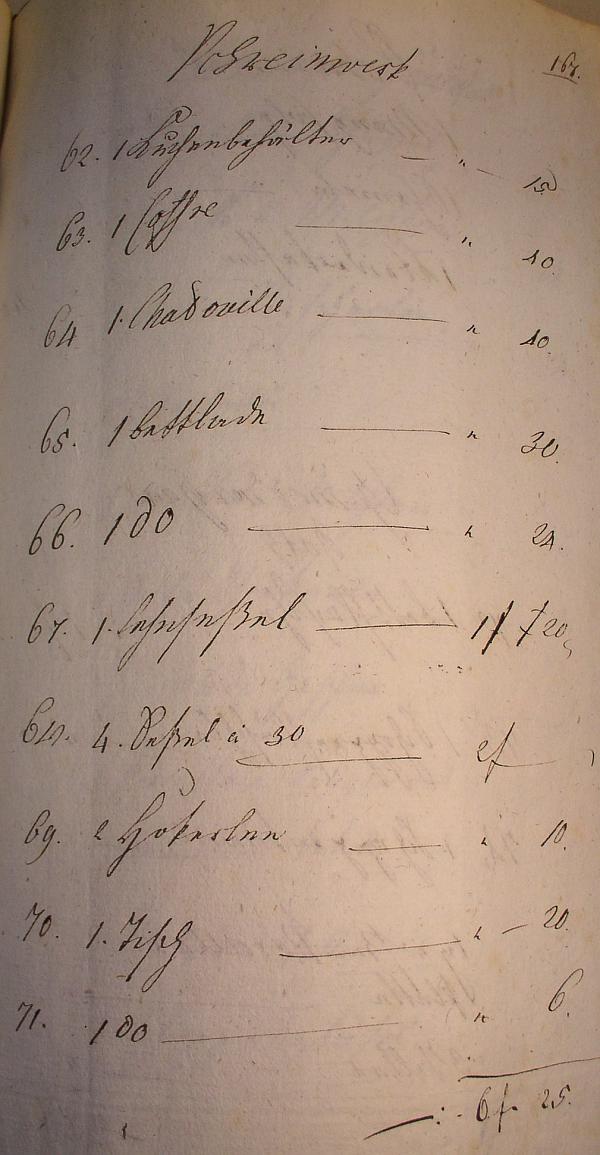 Schreinwerk
62. 1 Kuchenbehälter — " — 15
63. 1 Coffre — " 10.
64 1. Chadouille — " 10.
65. 1 bettlade — " 30.
66. 1 do — " 24.
67. 1. Lehnseßel — 1f 20
68. 4. Seßel à 30 — 2f —
69. 2 Hokerlen — " 10.
70. 1. Tisch — " — 20.
71. 1 do — " 6.
— : 6f. 25.